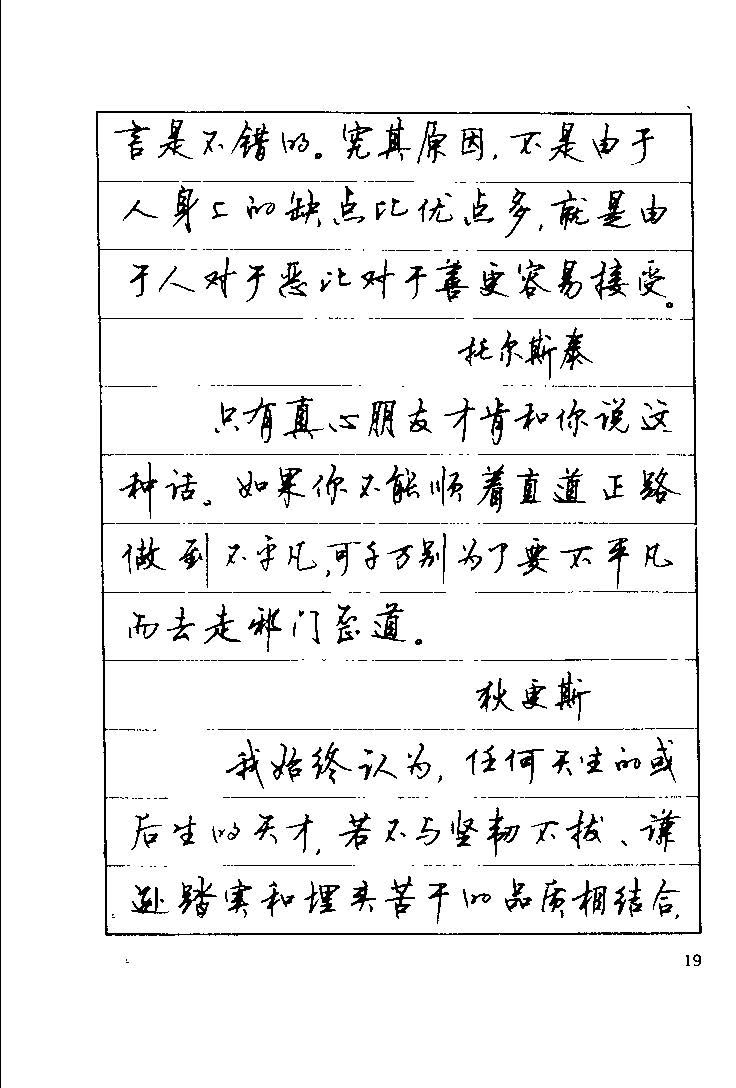 言是不错的。究其原因,不是由于
人身上的缺点比优点多,就是由
于人对于恶比对于善更容易接受。
托尔斯泰
只有真心朋友才肯和你说这
种话。如果你不能顺着直道正路
做到不平凡,可千万别为了要不平凡
而去走邪门歪道。
狄更斯
我始终认为,任何天生的或
后生的天才,若不与坚韧不拔、谦
逊踏实和埋头苦干的品质相结合,
19